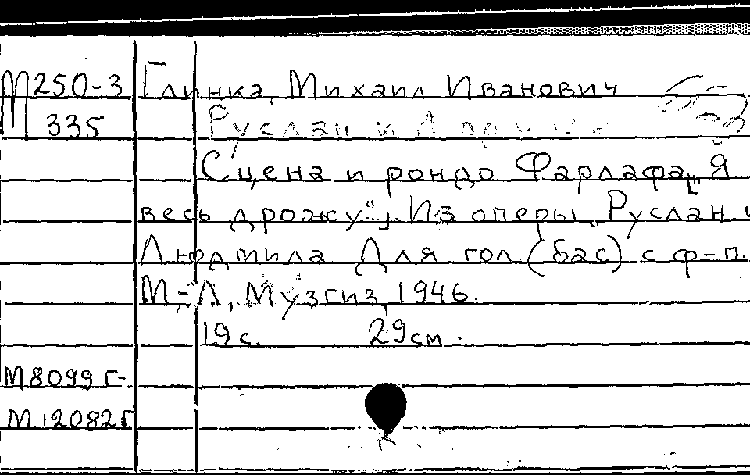 М250-3 Глинка, Михаил Иванович
335 Руслан и Людмила
Сцена и рондо Фарлафа „Я
весь дрожу". Из оперы Руслан и
Людмила Для гол (бас) с ф-п.
М.-Л, Музгиз, 1946.
19 с. 29 см.
М8099 г-
М12082г